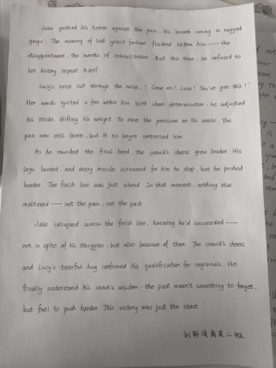 Jake gritted his teeth against the pain, his breath coming in ragged
gasps. The memory of last year's failure flashed before him —— the
disappointment, the months of rehabilitation. But this time, he refused to
let history repeat itself.
Lucy's voice cut through the noise, "Come on, Jake! You've got this!"
Her words ignited a fire within him. With sheer determination, he adjusted
his stride, shifting his weight to ease the pressure on his ankle. The
pain was still there, but it no longer controlled him.
As he rounded the final bend, the crowd's cheers grew louder. His
legs burned, and every muscle screamed for him to stop, but he pushed
harder. The finish line was just ahead. In that moment, nothing else
mattered —— not the pain, not the past.
Jake collapsed across the finish line, knowing he'd succeeded ——
not in spite of his struggles, but also because of them. The crowd's cheers
and Lucy's tearful hug confirmed his qualification for regionals. He
finally understood his coach's wisdom: the past wasn't something to forget,
but fuel to push harder. This victory was just the start.
高二